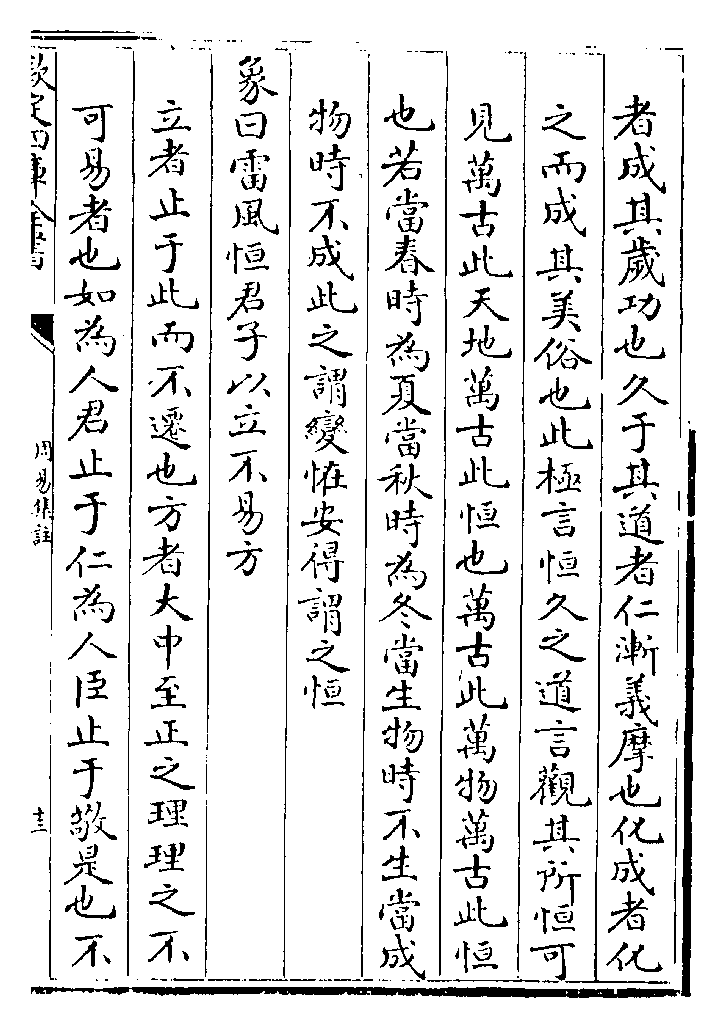 者成其歲功也久于其道者仁漸義摩也化成者化
之而成其美俗也此極言恒久之道言觀其所恒可
見萬古此天地萬古此恒也萬古此萬物萬古此恒
也若當春時為夏當秋時為冬當生物時不生當成
物時不成此之謂變恠安得謂之恒
象曰雷風恒君子以立不易方
立者止于此而不遷也方者大中至正之理理之不
可易者也如為人君止于仁為人臣止于敬是也不
欽定四庫全書
周易集註
十三